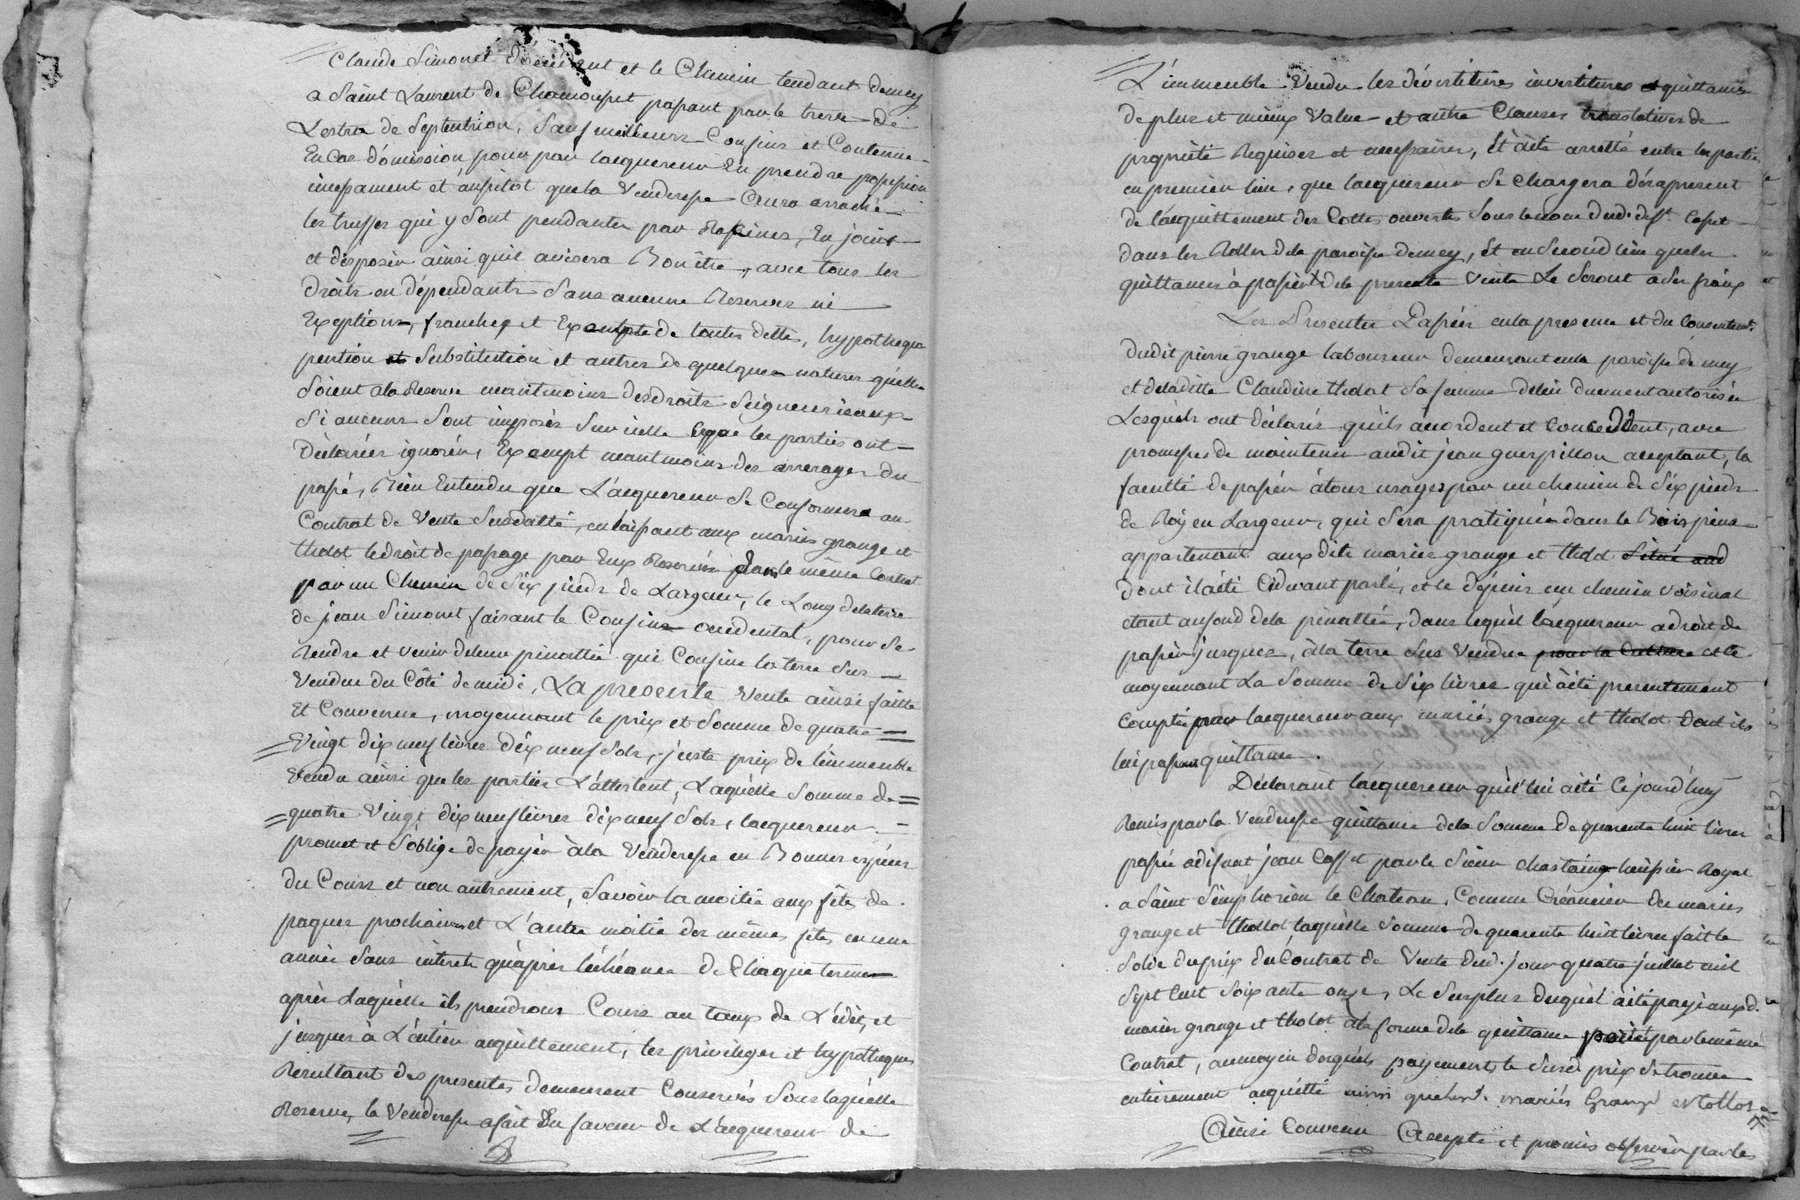 Claude Simonet d'orient et le Chemin tendant de mey
a Saint Laurent de Chamousset passant par le treve de
Lestra de Septentrion, Sauf meilleurs Confins et Contenue
En Cas d'omission pour par lacquereur En prendre possession
incessament et aussitost que la Venderesse aura arraché
les truffes qui y Sont pendantes par Racines, En jouir
et disposer ainsi quil avisera Bon être, avec tous les
droits en dépendants Sans aucune Reserves ni
Exeptions, franche et Exempte de toutes dette, hypotheque
pention et Substitution et autres de quelques natures qu'elles
Soient a la Reserve neantmoins des droits Seigneuriaux
Si aucuns Sont imposés Sur icelle Ce que les parties ont
Déclarées ignorer, Exempt neantmoins des arrerages du
passé, Bien Entendu que L'acquereur Se Conformera au
Contrat de Vente Susdatté, en laissant aux mariés grange et
tholot le droit de passage par Eux Reservés dans le même Contrat
par un Chemin de Six pieds de Largeur, le Long de la terre
de jean Simonet faisant le Confins occidental, pour Se
Rendre et venir de leur pinattée qui Confine la terre Sus
Vendue du Côté de midi, La presente Vente ainsi faitte
Et Convenue, moyennant le prix et Somme de quatre
Vingt dix neuf livres dix neuf Sols, juste prix de l'immeuble
Vendu ainsi que les parties L'attestent, Laquelle Somme de
quatre Vingt dix neuf livres dix neuf Sols, lacquereur
promet et S'oblige de payer à la Venderesse en Bonnes espèces
du Cours et non autrement, Savoir la moitié aux fêtes de
paques prochaines et L'autre moitié des mêmes fêtes en une
année Sans interets qu'après l'échéance de Chaque terme
après Laquelle ils prendrons Cours au taux de L'édit, et
jusques à L'entier acquittement, les privileges et hypotheques
Resultant des presentes demeurent Conservés Sous laquelle
Reserve, la Venderesse a fait En faveur de L'acquereur de
L'immeuble Vendu les dévestitures investitures et quittances
de plus et mieux Value et autre Clauses translatives de
proprieté Requises et necessaires, Et a été arretté entre les parties
en premier lieu, que lacquereur Se Chargera dès apresent
de l'acquittement des Cottes ouvertes Sous le nom dud. deft. Cosset
dans les Rolles de la paroisse de mey, Et en Second lieu que les
quittances à passer de la presente Vente Le Seront a Ses fraix
Les Presentes Passées en la presence et du Consentemt.
dudit pierre grange laboureur demeurant en la paroisse de mey
et de laditte Claudine tholot Sa femme de lui duement autorisée
Lesquels ont déclarés qu'ils accordent et Concedent, avec
promesses de maintenir audit jean guerpillon acceptant, la
faculté de passer à tous usages par un chemin de Six pieds
de Roy en Largeur, qui Sera pratiqué dans le Bois pins
appartenant aux dits mariés grange et tholot Situé aud
dont il a été Cidevant parlé, et le dépuis un chemin voisinal
étant au fond de la pinattée, dans lequel l'acquereur a droit de
passer jusques, à la terre Sus Vendue pour la Culture et le
moyennant La Somme de Six livres qui a été presentement
Comptée par lacquereur aux mariés grange et tholot dont ils
lui passent quittance.
Déclarant lacquereur qu'il lui a été Ce jourd'huy
Remis par la Venderesse quittance de la Somme de quarente huit livres
passée a difunt jean Cosset par le Sieur chastaing huissier Royal
a Saint Simphorien le Chateau, Comme Créancier des mariés
grange et tholot laquelle Somme de quarente huit livres fait le
Solde du prix du Contrat de Vente dud. jour quatre juillet mil
Sept Cent Soixante onze, Le Surplus duquel a été payé auxd.
mariés grange et tholot a la forme de la quittance portée par le même
Contrat, au moyen desquels payements le Susd. prix Se trouve
entierement acquitté ainsi que lesd. mariés Grange et tollot
Ainsi Convenu Accepté et promis observer par les